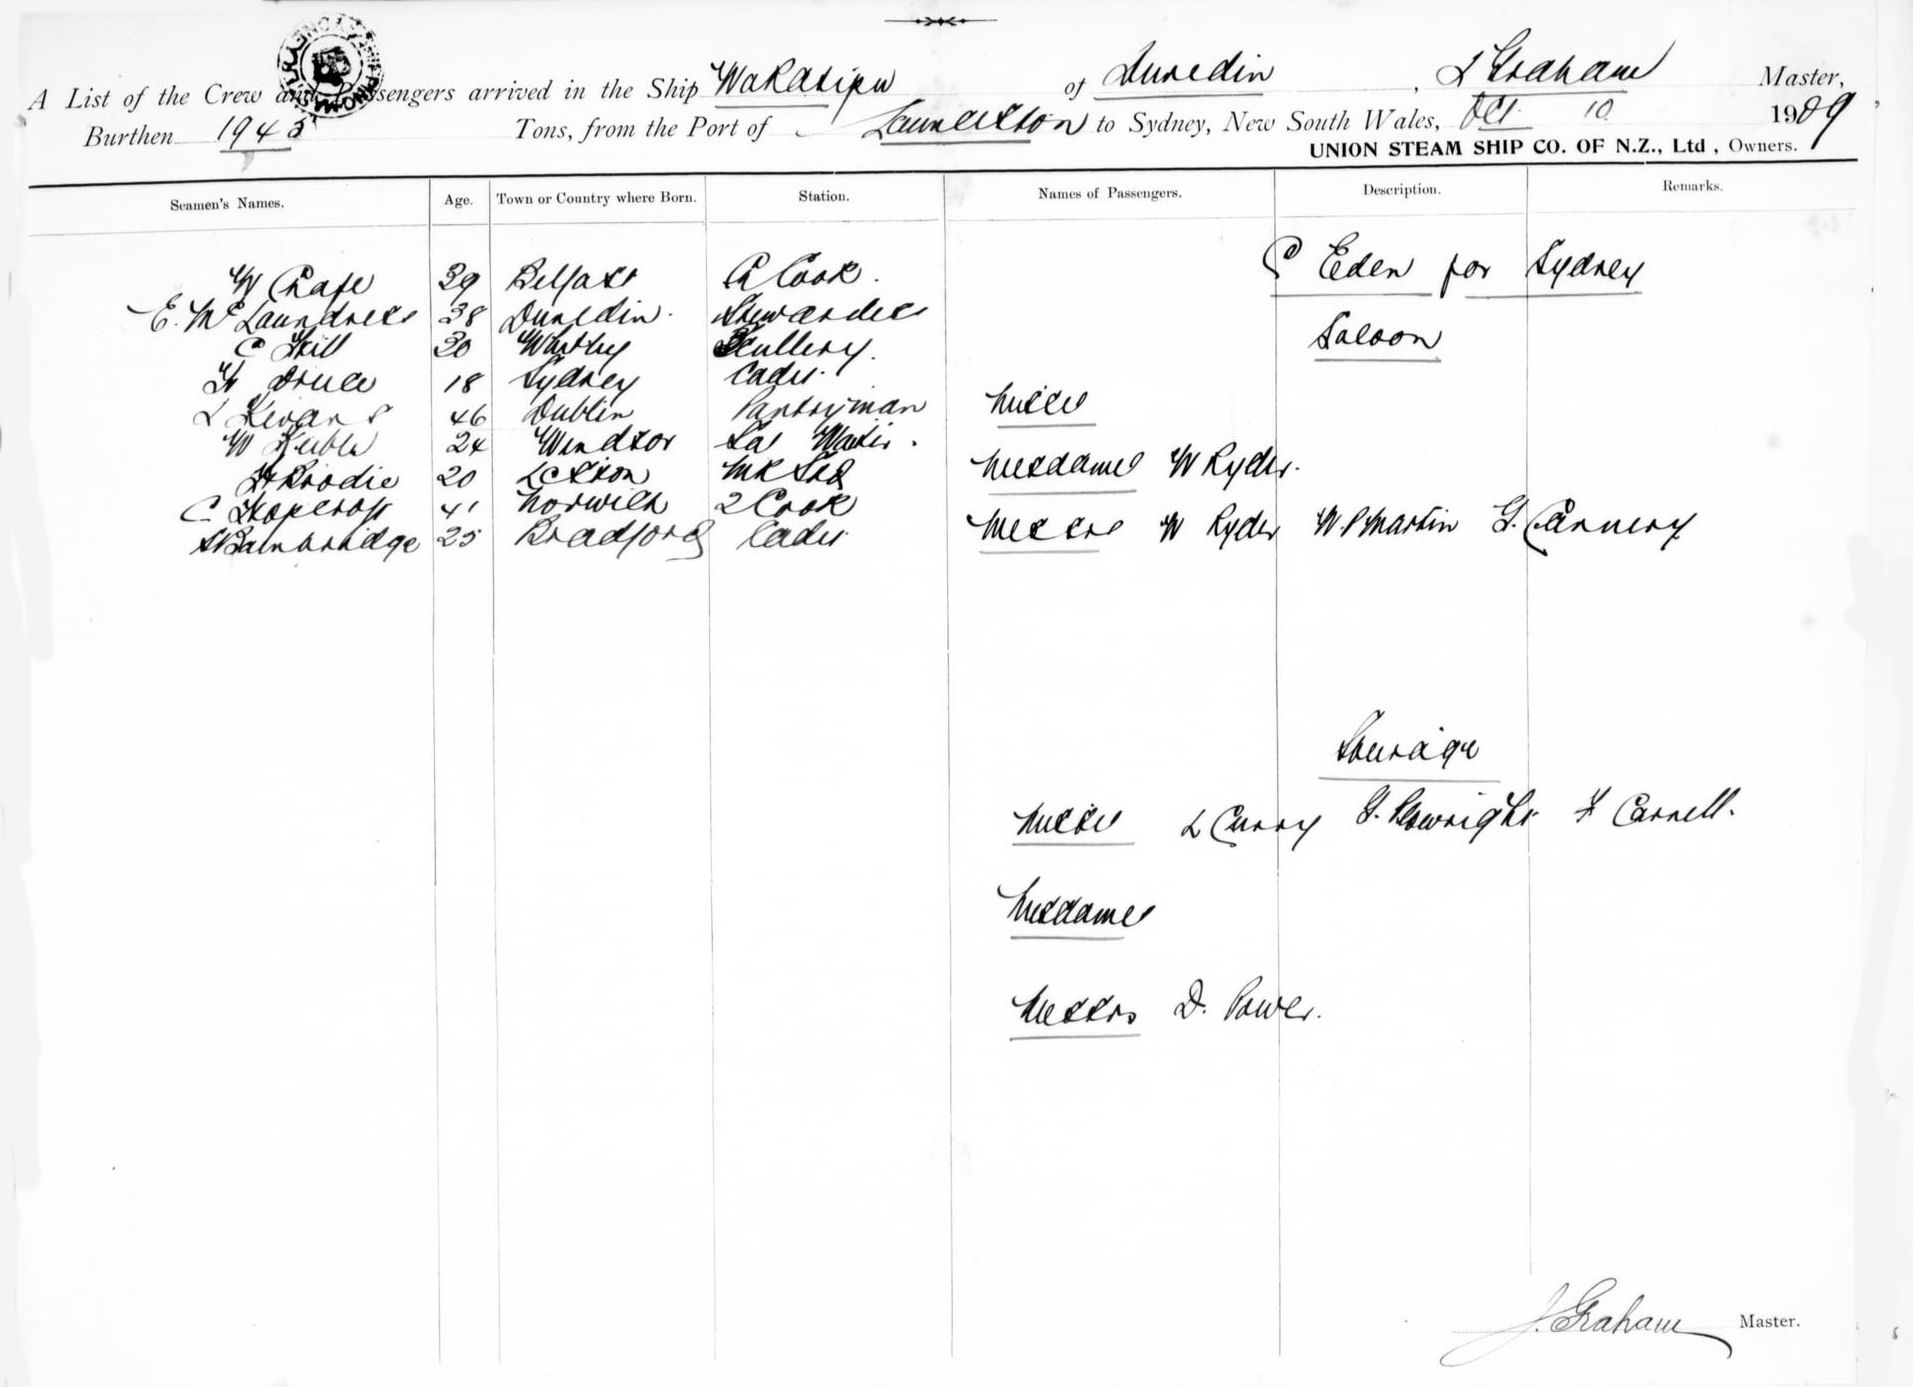 A List of the Crew and Passengers arrived in the Ship Wakatipu of Dunedin, J Graham Master,
Burthen 1945 Tons, from the Port of Launceston to Sydney, New South Wales, Oct 10 1909
UNION STEAM SHIP CO. OF N.Z., Ltd., Owners.
Seamen's Names. Age. Town or Country where Born. Station. Names of Passengers. Description. Remarks.
Eden for Sydney
W Chafe 39 Belfast Cook.
E. McLaundress 38 Dunedin. Stewardess
Saloon
C Hill 30 Whitby Scullery.
18 Sydney Cadet.
46 Dublin Pantryman
Misses
W 24 Windsor Sal Waiter.
H Brodie 20
Mesdames W Ryder.
C 41 Norwich 2 Cook
Bainbridge 25 Bradford Cadet
Messrs W Ryder W. P Martin G. Cannery
Steerage
Misses L Curry G. Plowright F Carnell.
Mesdames
Messrs D. Power.
J. Graham Master.